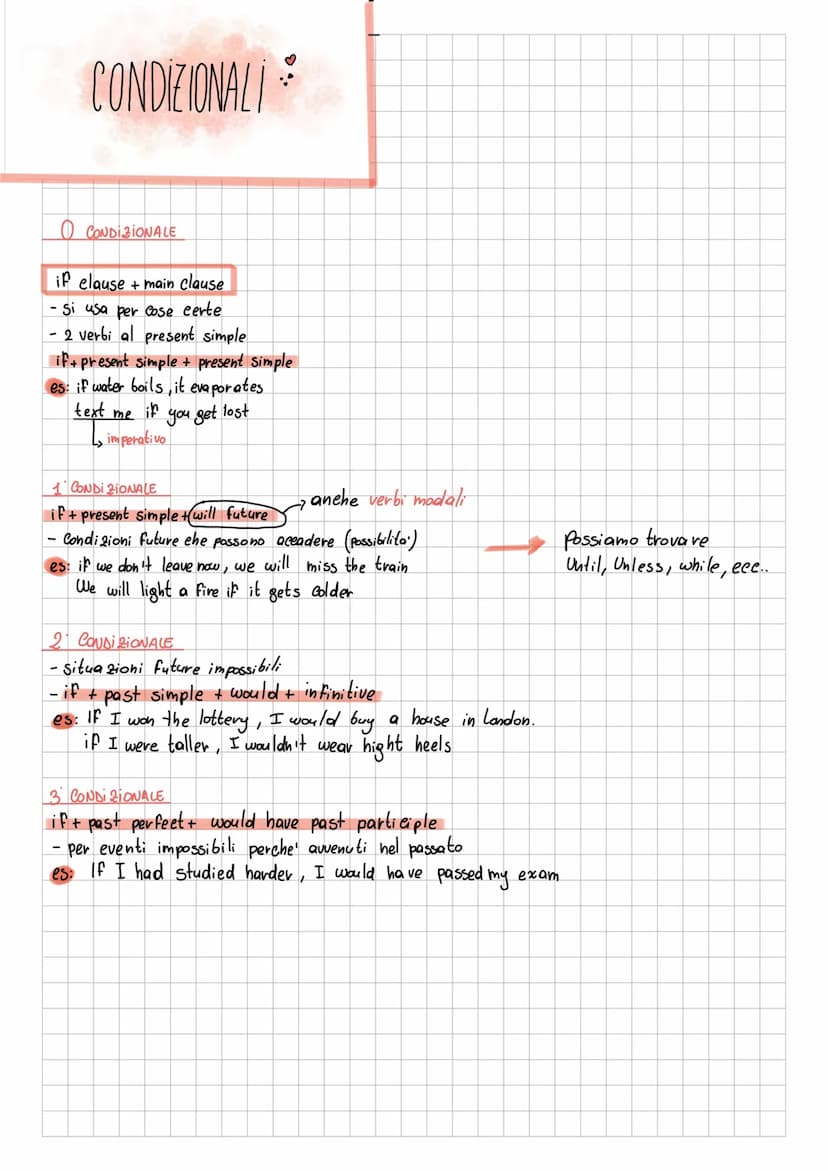 CONDIZIONALI
0 CONDIZIONALE
if clause + main clause
- si usa per cose certe
- 2 verbi al present simple
if + present simple + present simple
es: if water boils, it evaporates
text me if you get lost
imperativo
1° CONDIZIONALE
anche verbi modali
if + present simple + will future
- Condizioni future che possono accadere (possibilita')
Possiamo trovare
es: if we don't leave now, we will miss the train
Until, Unless, while, ecc..
We will light a fire if it gets colder
2° CONDIZIONALE
- situazioni future impossibili
- if + past simple + would + infinitive
es: If I won the lottery, I would buy a house in London.
if I were taller, I wouldn't wear hight heels
3° CONDIZIONALE
if + past perfect + would have past participle
- per eventi impossibili perche' avvenuti nel passato
es: If I had studied harder, I would have passed my exam